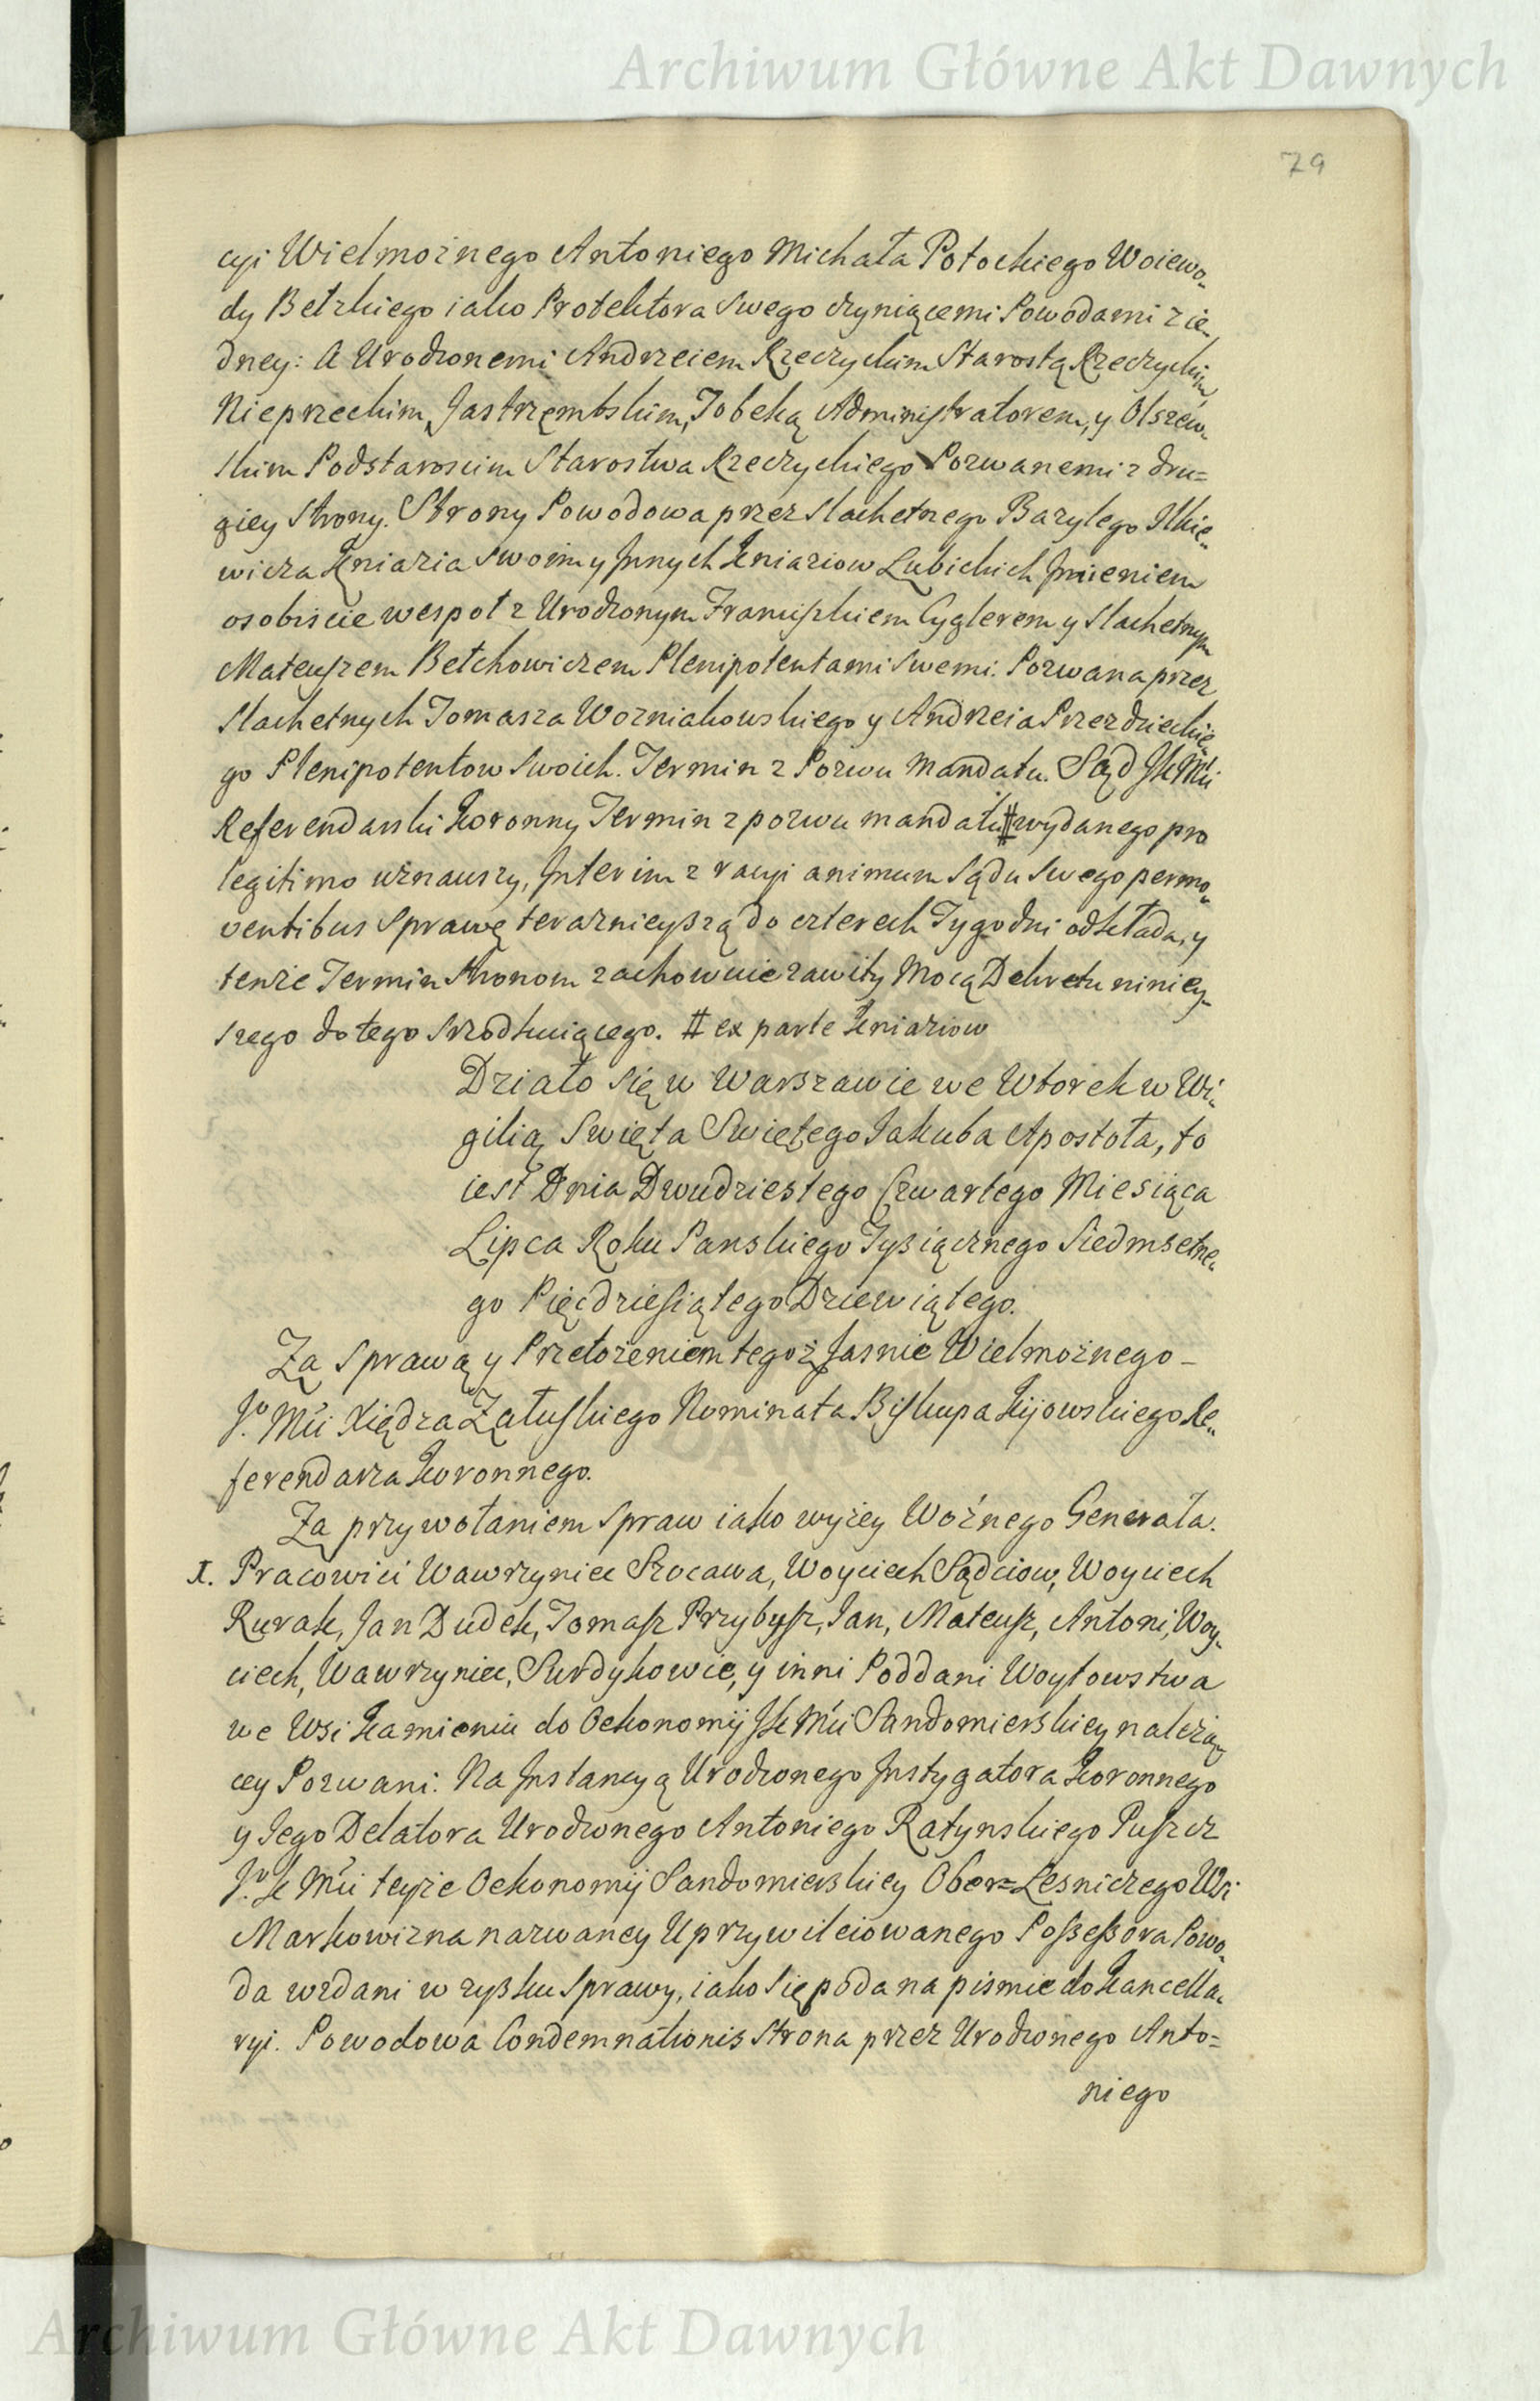 Archiwum Główne Akt Dawnych
79
cyi Wielmożnego Antoniego Michała Potockiego Woiewo-
dy Bełzkiego iako Protektora swego czyniącemi Powodami z ie-
dney: A Urodzonemi Andrzeiem Rzeczyckim Starostą Rzeczyckim
Nieprzeckim, Jastrzembskim, Tobeką Administratorem, y Olszew-
skim Podstarościm Starostwa Rzeczyckiego Pozwanemi z dru=
giey Strony. Strony Powodowa przez Slachetnego Bazylego Ilkie-
wicza Kniazia swoim y Innych Kniaziow Lubickich Imieniem
osobiscie wespoł z Urodzonym Franciszkiem Cyglerem y Slachetnym
Mateuszem Bełchowiczem Plenipotentami swemi. Pozwana przez
Slachetnych Tomasza Wozniakowskiego y Andrzeia Przezdzieckie-
go Plenipotentow swoich. Termin z Pozwu Mandatu. Sąd JKMci
Referendarski Koronny Termin z pozwu mandatu # wydanego pro
legitimo uznawszy, Interim z racyi animum Sądu swego permo-
ventibus Sprawę teraznieyszą do czterech Tygodni odkłada, y
tenże Termin Stronom zachowuie zawity Mocą Dekretu niniey-
szego do tego srzodkuiącego. # ex parte Kniaziow
Działo się w Warszawie we Wtorek w Wi-
gilią Swięta Swiętego Jakuba Apostoła, to
iest Dnia Dwudziestego Czwartego Miesiąca
Lipca Roku Panskiego Tysiącznego Siedmsetne-
go Pięcdziesiątego Dziewiątego.
Za sprawą y Przełożeniem tegoż Jasnie Wielmożnego -
Jo Mci Xiędza Załuskiego Nominata Biskupa Kijowskiego Re-
ferendarza Koronnego.
Za przywołaniem spraw iako wyżey Woźnego Generała.
1. Pracowici Wawrzyniec Szocawa, Woyciech Sądciow, Woyciech
Rurak, Jan Dudek, Tomasz Przybysz, Jan, Mateusz, Antoni, Woy-
ciech, Wawrzyniec, Surdykowie, y inni Poddani Woytowstwa
we Wsi Kamieniu do Oekonomij JKMci Sandomierskiey należą-
cey Pozwani. Na Instancyą Urodzonego Instygatora Koronnego
y Jego Delatora Urodzonego Antoniego Ratynskiego Puszcz
Jo K Mci teyże Oekonomij Sandomierskiey Ober=Lesniczego Wsi
Markowizna nazwaney Uprzywileiowanego Possessora Powo-
da wzdani w zysku sprawy, iako się poda na pismie do Kancella-
ryi. Powodowa Condemnationis Strona przez Urodzonego Anto=
niego
Archiwum Główne Akt Dawnych